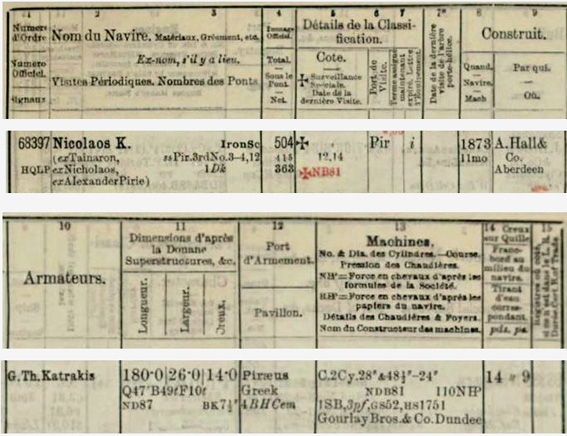 1
2
3
4
5
6
7
7*
8
9
Numéro d'Ordre
Numéro Officiel.
Signaux
Nom du Navire. Matériaux, Gréement, etc.
Ex-nom, s'il y a lieu.
Visites Périodiques. Nombres des Ponts
Tonnage Officiel.
Total.
Sous le Pont.
Net.
Détails de la Classification.
Cote.
✠ Surveillance Spéciale.
Date de la dernière Visite.
Port de Visite.
Terme assigné maintenant expiré. Lettre
Date de la dernière visite de l'arbre porte-hélice.
Construit.
Quand.
Navire.
Mach
Par qui.
Où.
68397 Nicolaos K. Iron Sc 504 ✠ Pir i 1873 A. Hall &
(ex Tainaron, ss Pir. 3rd No. 3-4,12 415 12,14 11mo Co.
HQLP ex Nicholaos, 1 Dk 363 ✠ NB81 Aberdeen
ex Alexander Pirie)
10
11
12
13
14
15
Armateurs.
Dimensions d'après la Douane
Superstructures, &c.
Longueur.
Largeur.
Creux.
Port d'Armement.
Pavillon.
Machines.
No. & Dia. des Cylindres.—Course.
Pression des Chaudières.
NHP=Force en chevaux d'après les formules de la Société.
RHP=Force en chevaux d'après les papiers du navire.
Détails des Chaudières & Foyers.
Nom du Constructeur des machines.
Creux sur Quille
Franc-bord au milieu du navire.
Tirant d'eau correspondant.
pds. ps.
G. Th. Katrakis 180·0 26·0 14·0 Piræus C.2Cy.28"&48½"–24" 14 9
Q47'B49'F10' Greek NDB81 110NHP
ND87 BK7½" 4BHCem 1SB,3pf,GS52,HS1751
Gourlay Bros. & Co. Dundee